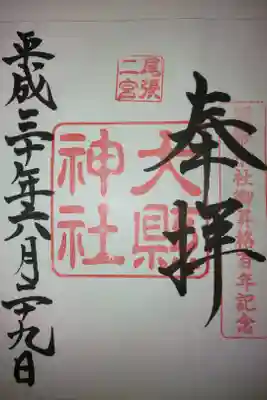 社御昇格百年記念
奉拝
尾張
二宮
大縣
神社
平成三十年六月二十九日